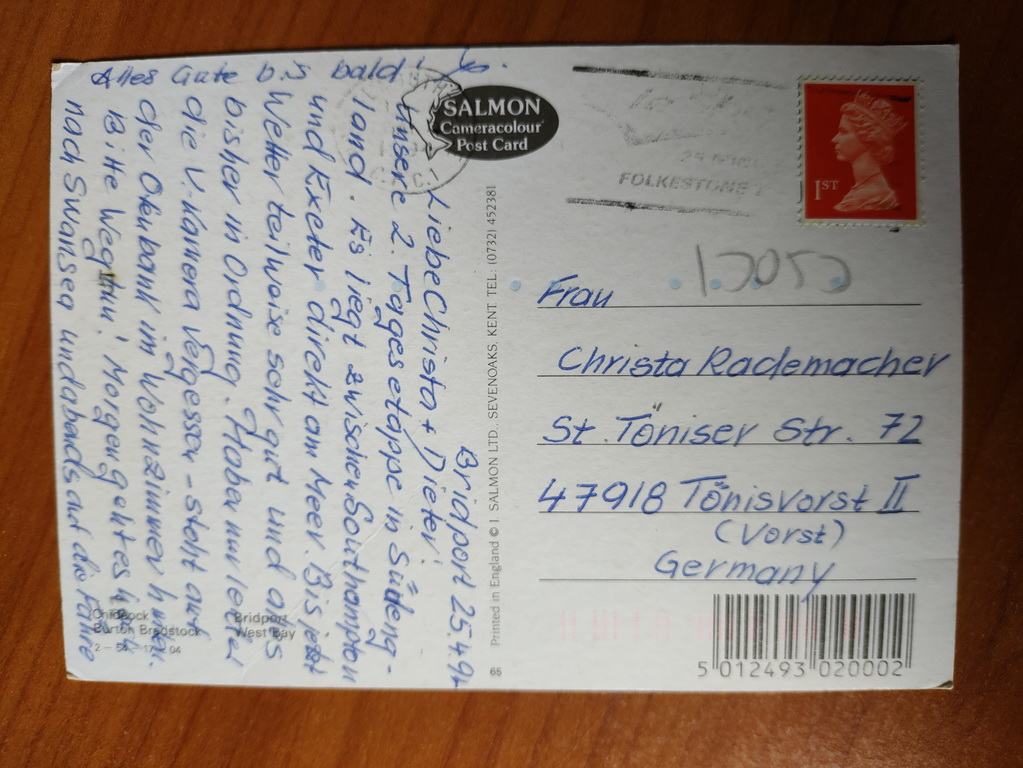 Bridport 25.4.94
Liebe Christa + Dieter!
Unsere 2. Tagesetappe in Südeng-
land. Es liegt zwischen Southampton
und Exeter direkt am Meer. Bis jetzt
Wetter teilweise sehr gut und alles
bisher in Ordnung. Haben nur leider
die V. Kamera vergessen - steht auf
der Ofenbank im Wohnzimmer
Bitte Wegtun! Morgen geht es
nach Swansea und abends auf die Fähre
Alles Gute bis bald!
Chideock
Burton Bradstock
Bridport
West Bay
SALMON
Cameracolour
Post Card
Printed in England © J. SALMON LTD., SEVENOAKS, KENT. TEL: (0732) 452381
65
FOLKESTONE
1ST
Frau
Christa Rademacher
St. Töniser Str. 72
47918 Tönisvorst II
(Vorst)
Germany
5 012493 020002